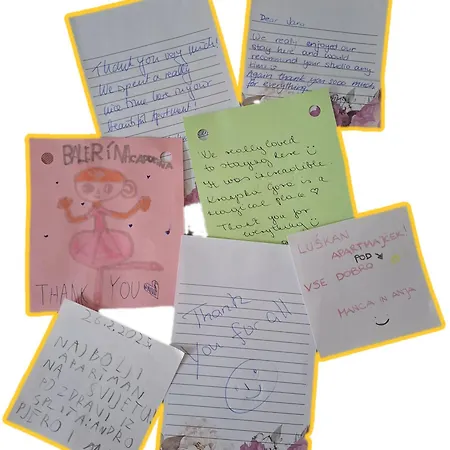 Thank you very much!
We spent a really
nice time in your
beautiful apartment!
Dear Jani,
We really enjoyed our
stay here and would
recommend your studio any
time :)
Again thank you sooo much
for everything
BALERÍNA
THANK YOU
We really loved
to staying here :)
It was incredible.
Kranjska Gora is a
magical place ♡
Thank you for
everything :)
LUŠKAN
APARTMAJČEK!
POD
VSE DOBRO
MANCA IN ANJA
Thank
you for all
26.2.2025
NAJBOLJI
APARTMAN
NA SVIJETU!
POZDRAVI IZ
SPLITA: ANDRO
PJERO I